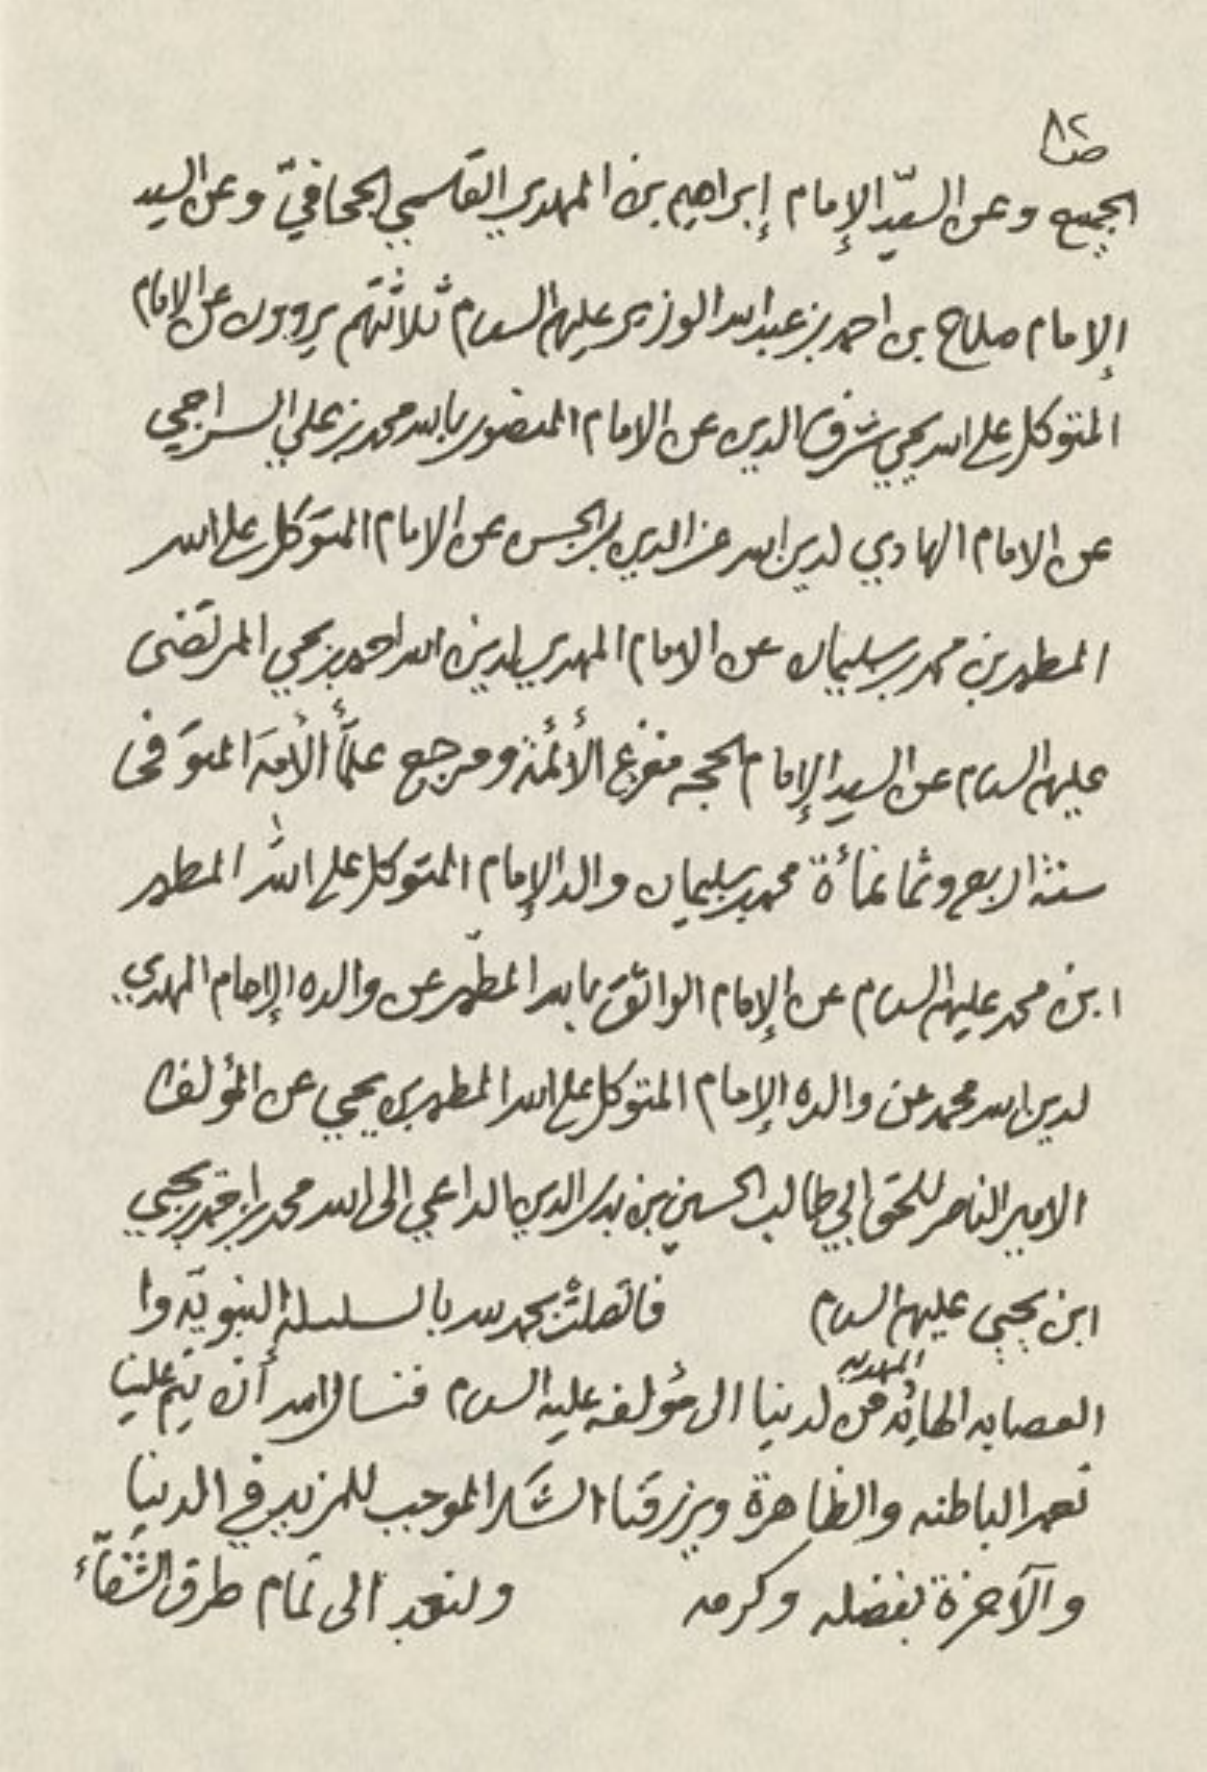 ٨٢
الجميع وعن السيّد الإمام إبراهيم بن المهدي القاسمي الجحافيّ وعن السيد
الإمام صلاح بن احمد بن عبدالله الوزير عليهم السلام ثلاثتهم يروون عن الامام
المتوكل على الله يحيي شرف الدين عن الامام المنصور بالله محمد بن علي السراجي
عن الامام الهادي لدين الله عز الدين بن الحسن عن الامام المتوكل على الله
المطهر بن محمد بن سليمان عن الامام المهدي لدين الله احمد بن يحيي المرتضى
عليهم السلام عن السيد الإمام الحجه مفزع الأئمة ومرجع علمآء الأمة المتوَفى
سنة اربع وثمانمأة محمد بن سليمان والد الإمام المتوكل على الله المطهر
ابن محمد عليهم السلام عن الإمام الواثق بالله المطّهر عن والده الإمام المهدي
لدين الله محمد عن والده الإمام المتوكل على الله المطهر بن يحيي عن المؤلف
الامير الناصر للحق ابي طالب الحسين بن بدر الدين الداعي الى الله محمد بن احمد بن يحيي
ابن يحيي عليهم السلام فاتصلت بحمد الله بالسلسلة النبويّه وا
المهديه
العصابه من لدينا الى مؤلفه عليه السلام فنسال الله أن يتم علينا
نعمه الباطنه والظاهرة ويرزقنا الشكر الموجب للمزيد في الدنيا
والآخرة بفضله وكرمه ولنعد الى تمام طرق الشفآء